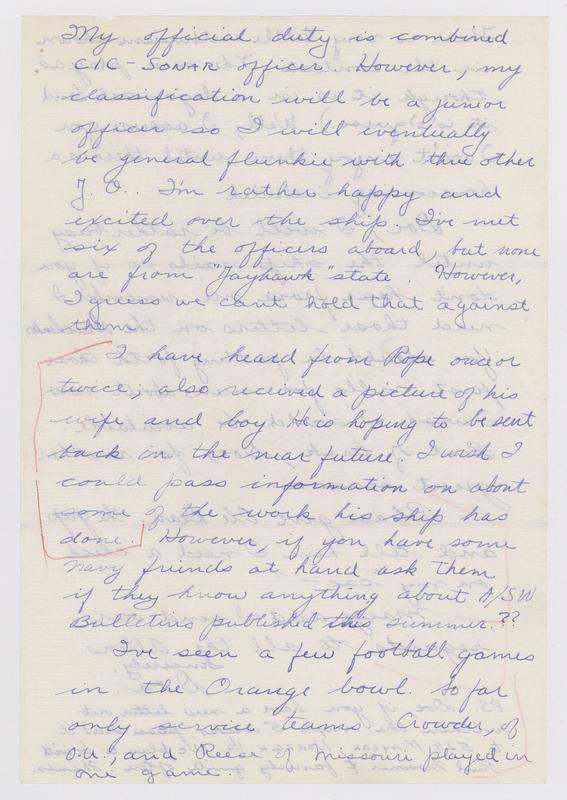 My official duty is combined
CIC-SONAR officer. However, my
classification will be a junior
officer so I will eventually
be general flunkie with three other
J.O.. I'm rather happy and
excited over the ship. I've met
six of the officers aboard, but none
are from "Jayhawk" state. However,
I guess we cant hold that against
them.
I have heard from Rope once or
twice, also received a picture of his
wife and boy. He is hoping to be sent
back in the near future. I wish I
could pass information on about
some of the work his ship has
done. However, if you have some
navy friends at hand ask them
if they know anything about A/SW
Bulletins published this summer.??
I've seen a few football games
in the Orange bowl. So far
only service teams. Crowder, of
O.U., and Reese of Missouri played in
one game.